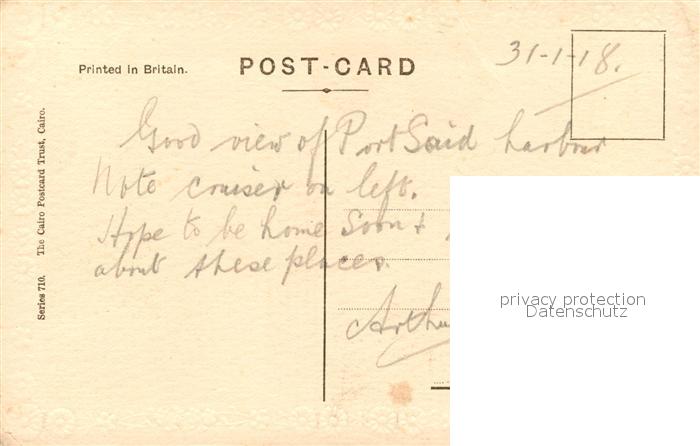 31-1-18.
Printed in Britain.
POST-CARD
Good view of Port Said harbour
Note cruiser on left.
Hope to be home soon &
about these places.
Series 710. The Cairo Postcard Trust, Cairo.
privacy protection
Datenschutz